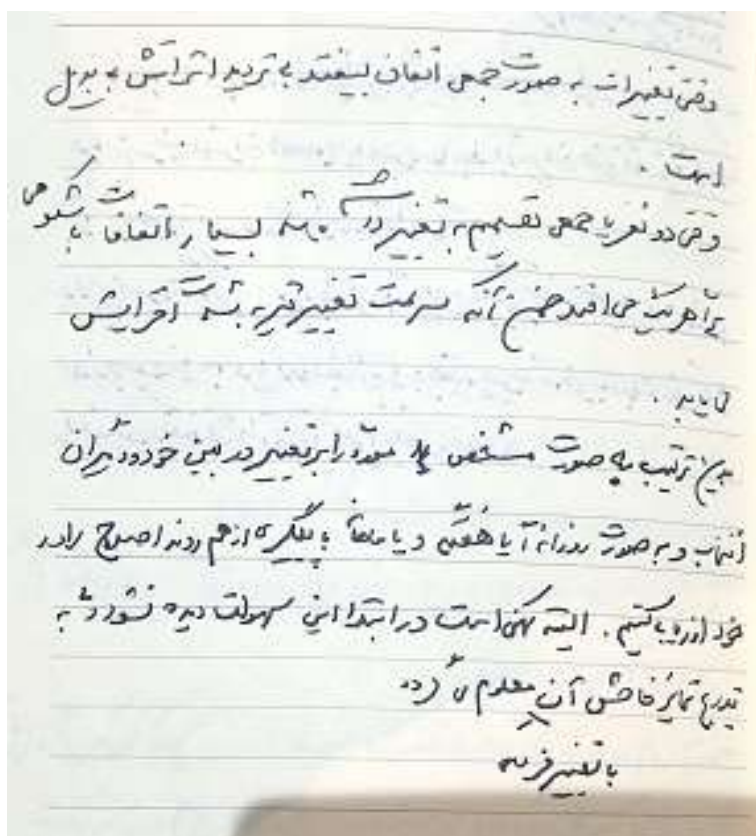 وقتی تغییرات به صورت جمعی اتفاق بیفتد بی تردید اثراتش بی بدیل
است.
وقتی دو نفر یا جمعی تصمیم به تغییر داشته باشند بسیار اتفاقات باشکوهی
برای هر یک می افتد ضمن آنکه سرعت تغییر نیز به شدت افزایش
می یابد.
بدین ترتیب به صورت مشخص را برای تغییر در بین خود و دیگران
انتخاب و به صورت روزانه یا هفتگی و یا ماهانه با پیگیری از هم روند اصلاح را در
خود ارزیابی کنیم. البته ممکن است در ابتدا این سهولت دیده نشود و به
تدریج تمایز فاحش آن معلوم می گردد
با تغییر فردی